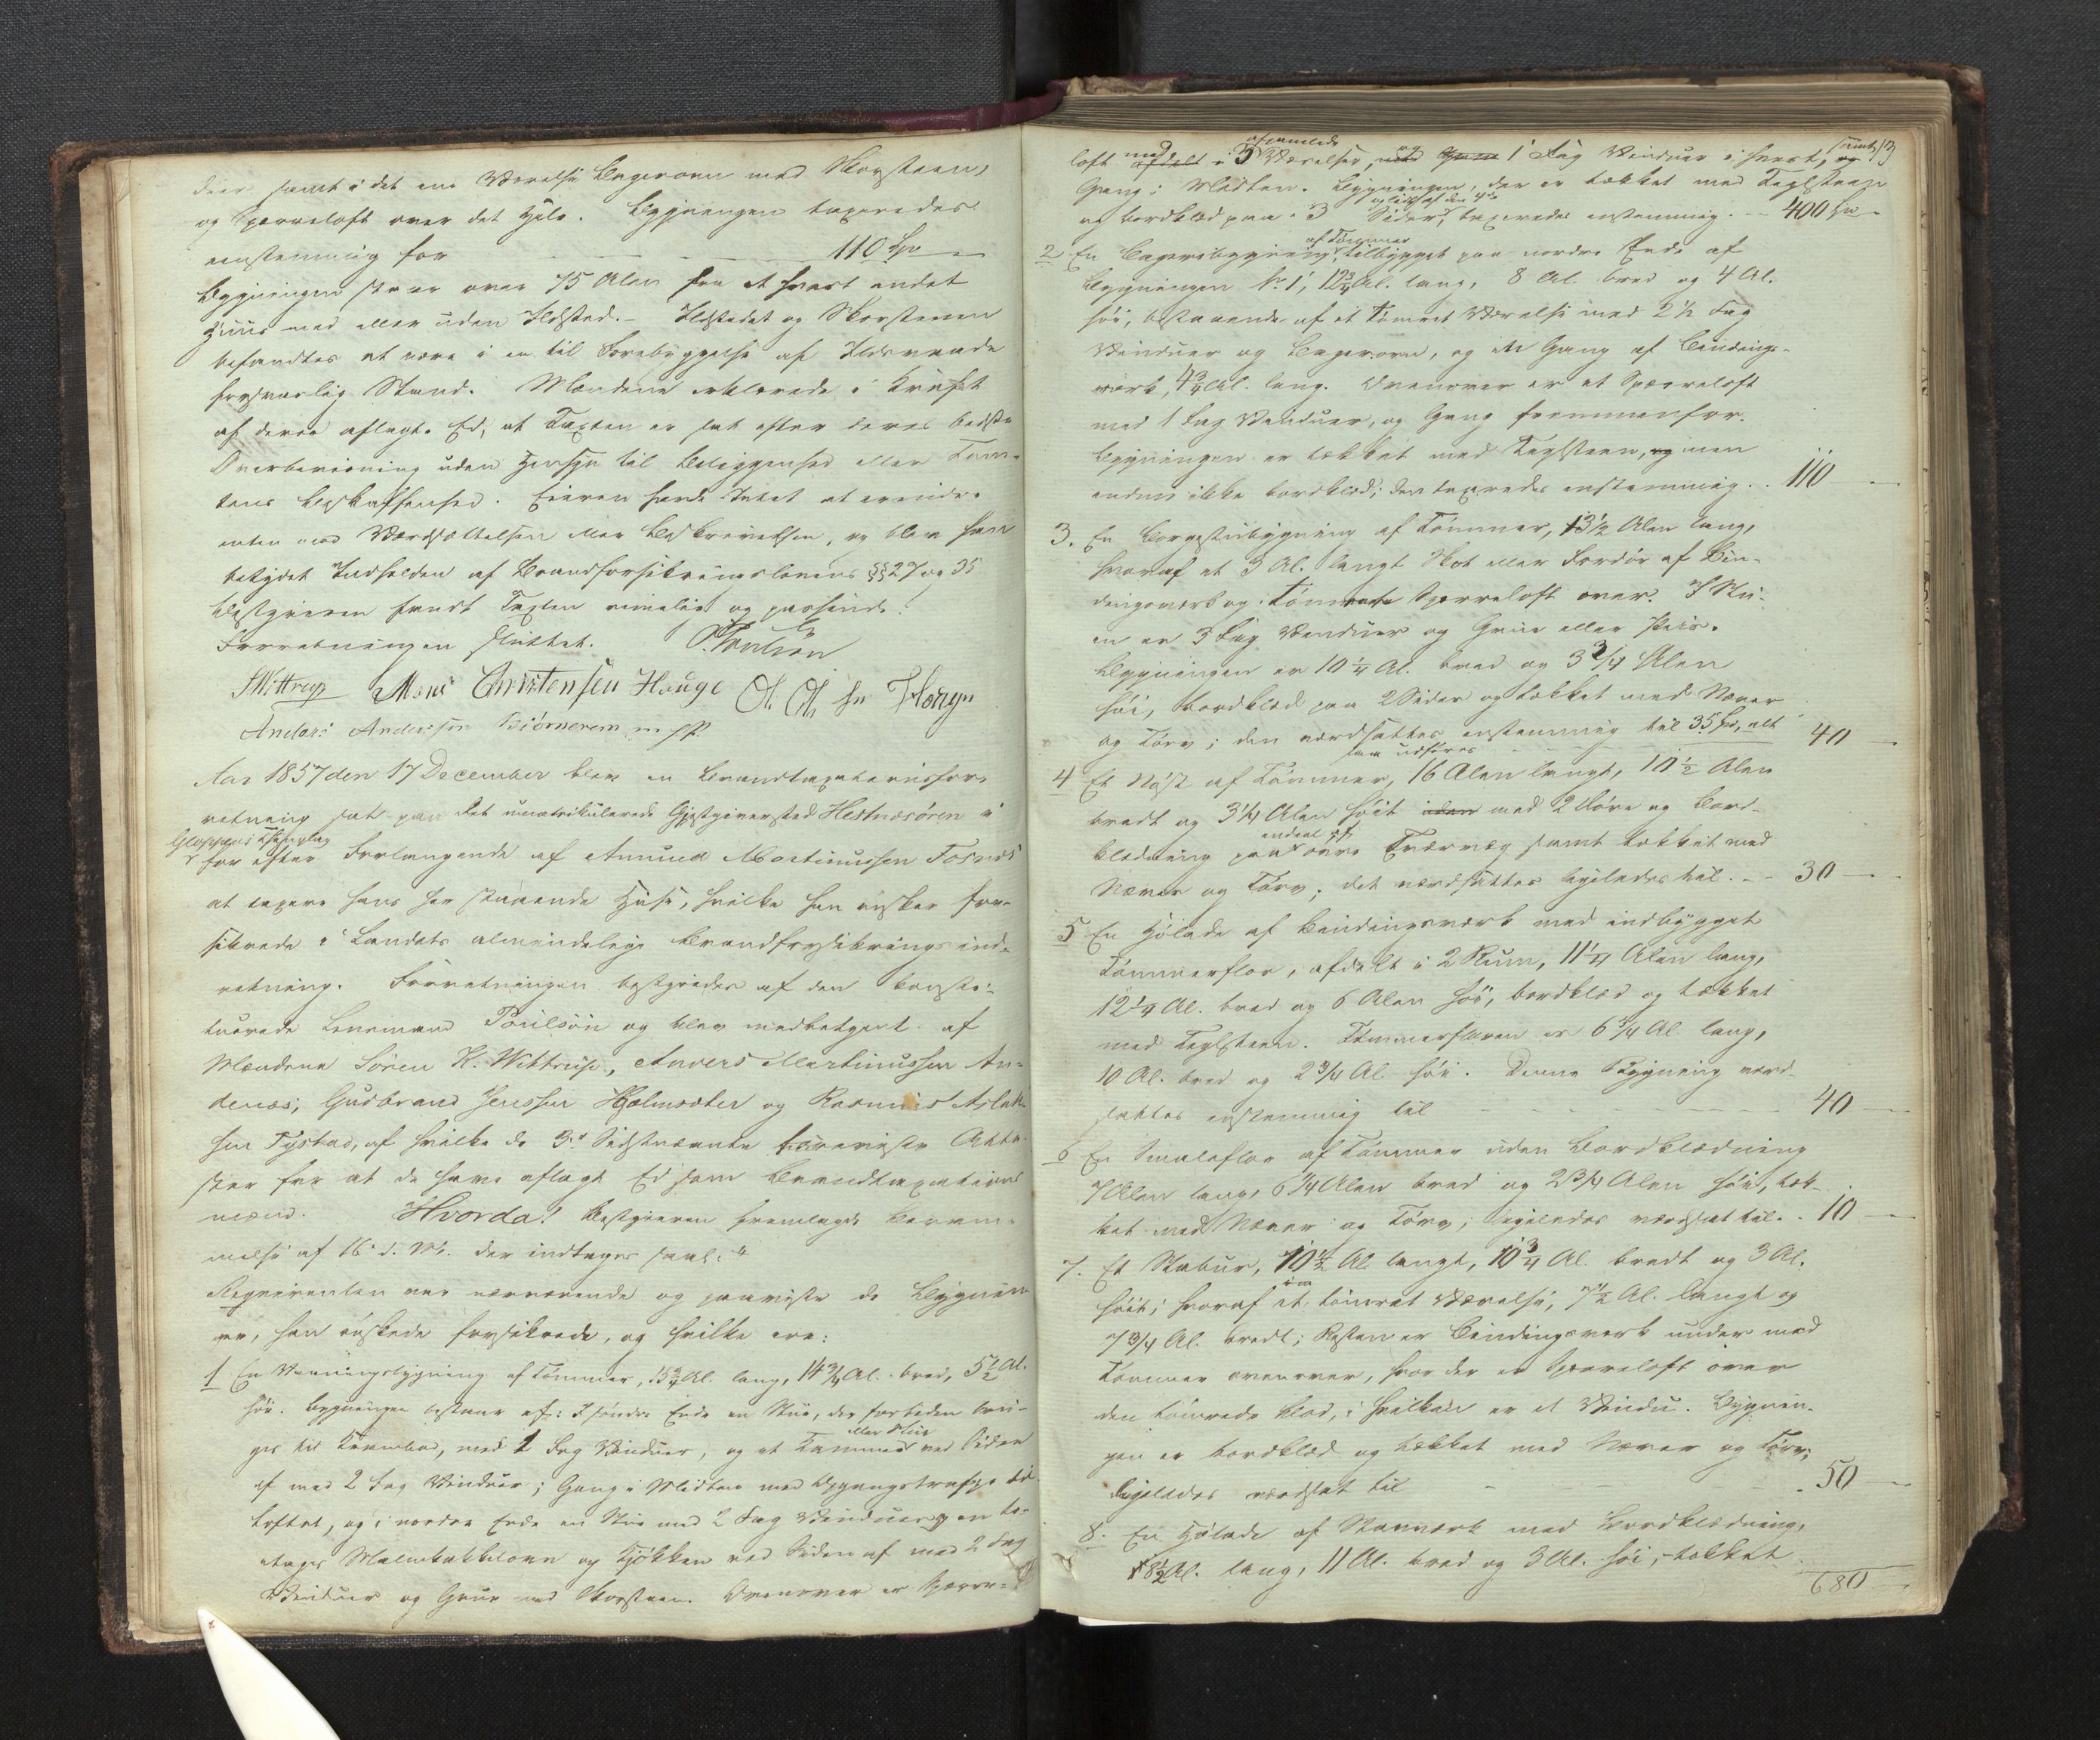 duer samt i det ene Værelse Bagerovn med Skorsteen,
og Sperreloft over det Hele. Bygningen taxeredes
eenstemmig for 110 Spd
Bygningen staaer over 75 Alen fra et hvert andet
Huus med eller uden Ildsted. - Ildstedet og Skorstenen
befandtes at være i en til Forebyggelse af Ildsvaade
forsvarlig Stand. Mændene erklærede i Kraft
af deres aflagte Ed, at Taxten er sat efter deres bedste
Overbeviisning uden Hensyn til Beliggenhed eller Tom-
tens Beskaffenhed. Eieren havde Intet at erindre
enten mod Værdsættelsen eller Beskrivelsen, og blev ham
betydet Indholden af Brandforsikringslovens §§ 27 og 35
Bestyreren fandt Taxten rimelig og passende.
Forretningen sluttet. Poulsøn
SWittrup Mons Christensen Hauge
Anders Andersen Biørnerem
Aar 1857 den 17 December blev en Brandtaxationsfor-
retning sat paa det umatrikulerede Gjestgiversted Hestnæsøren i
for efter Forlangende af Amund Martinussen Fosnæs
at taxere hans her staaende Huse, hvilke han ønsker for-
sikrede i Landets almindelige Brandforsikringsind-
retning. Forretningen bestyredes af den konsti-
tuerede Lensmand Poulsøn og blev medbetjent af
Mændene Søren K. Wittrup, Anders Martinussen An-
denæs, Gudbrand Jenssen Holmsæter og Rasmus Aslak-
sen Tystad, af hvilke de 3de Sidstnævnte foreviste Atte-
ster for at de have aflagt Ed som Brandtaxations
mænd. Hvorda! Bestyreren fremlagde Beram-
melse af 16 d. M. der indtages saal:
Reqvirenten var nærværende og paaviste de Bygnin
ger, han ønskede forsikrede, og hvilke ere:
1 En Vaaningsbygning af Tømmer, 15¾ Al. lang, 14¾ Al. bred, 5½ Al.
høi. Bygningen bestaaer af: I søndre Ende en Stue, der fortiden bru-
ges til Krambod, med 1 Fag Vinduer, og et Kammer eller Stue ved Siden
af med 2 Fag Vinduer; Gang i Midten med Opgangstrappe til
Loftet, og i nordre Ende en Stue med 2 Fag Vinduer og en to-
etages Kakkelovn og Kjøkken ved Siden af med 2 Fag
Vinduer og Grue med Skorsteen. Ovenover er Sperre-
loft med 5 Værelser, og 1 Fag Vinduer i hvert, samt
Gang i Midten. Bygningen, der er tækket med Teglsteen
og bordklæd paa 3 Sider, taxeredes eenstemmig. - 400 Spd
2 En Bageribygning af Tømmer, tilbygget paa nordre Ende af
Bygningen No 1, 12¾ Al. lang, 8 Al. bred og 4 Al.
høi, bestaaende af et tømret Værelse med 2½ Fag
Vinduer og Bagerovn, og en Gang af Bindings-
værk, 4¾ Al. lang. Ovenover er et Sperreloft
med 1 Fag Vinduer, og Gang fremmenfor.
Bygningen er tækket med Teglsteen, og men
endnu ikke bordklæd; den taxeredes eenstemmig. . 110
3. En Borgstubygning af Tømmer, 13½ Alen lang,
hvoraf et 3 Al. langt Skot eller Fordør af Bin-
dingsværk og Sperreloft over. I Stu-
en er 3 Fag Vinduer og Grue eller Peis.
Bygningen er 10¼ Al. bred og 3¾ Alen
høi, bordklæd paa 2 Sider og tækket med Næver
og Tørv; den værdsattes eenstemmig til 35 Spd, alt
saa udføres 40
4 Et Nøst af Tømmer, 16 Alen langt, 10½ Alen
bredt og 3¼ Alen høit uden med 2 Døre og Bord-
klædning paa endeel af øvre Tværvæg samt tækket med
Næver og Tørv; det værdsattes ligeledes til. - - 30
5 En Høelade af Bindingsværk med indbygget
Tømmerflor, afdelt i 2 Rum, 11¼ Alen lang,
12¼ Al. bred og 6 Alen høi, bordklæd og tækket
med Teglsteen. Tømmerfloren er 6¾ Al. lang,
10 Al. bred og 2¾ Al. høi. Denne Bygning værd-
sattes eenstemmig til 40
6 En Smaleflor af Tømmer uden Bordklædning
7 Alen lang, 6¼ Alen bred og 2¾ Alen høi, tæk-
ket med Næver og Tørv; ligeledes værdsat til. . 10
7. Et Stabur, 10½ Al. langt, 10¾ Al. bredt og 3 Al.
høit; hvoraf et tømret Værelse, 7½ Al. langt og
7¾ Al. bredt; Resten er Bindingsværk under med
Tømmer ovenover, hvor der er Sperreloft over
den tømrede Bod, i hvilken er et Vindu. Bygnin-
gen er bordklæd og tækket med Næver og Tørv;
ligeledes værdsat til 50
8. En Høelade af Stavværk med Bordklædning,
8½ Al. lang, 11 Al. bred og 3 Al. høi, tækket
680